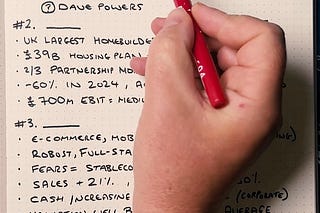 ? DAVE POWERS
#2. ____
· UK LARGEST HOMEBUILDE
· £39B HOUSING PLAN
· 2/3 PARTNERSHIP MO
· -60% IN 2024, A
· £700M EBIT = MEDIU
#3. ____
· E-COMMERCE, MOB ING)
· ROBUST, FULL-STA
· FEARS = STABLECO
· SALES +21%, 0%
· CASH INCREASING (CORPORATE)
AVERAGE